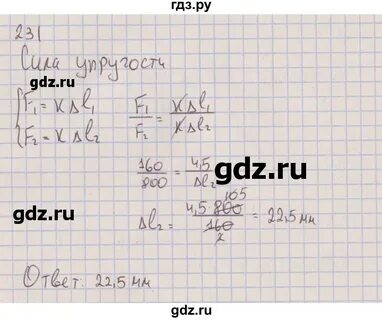 гдз.ру
231
Сила упругости
F₁ = K Δl₁
F₂ = K Δl₂
F₁/F₂ = KΔl₁/KΔl₂
gdz.ru
160/800 = 4,5/Δl₂
gdz.ru
gdz.ru
Δl₂ = 4,5 800/160 = 22,5 мм
gdz.ru
Ответ: 22,5 мм
gdz.ru